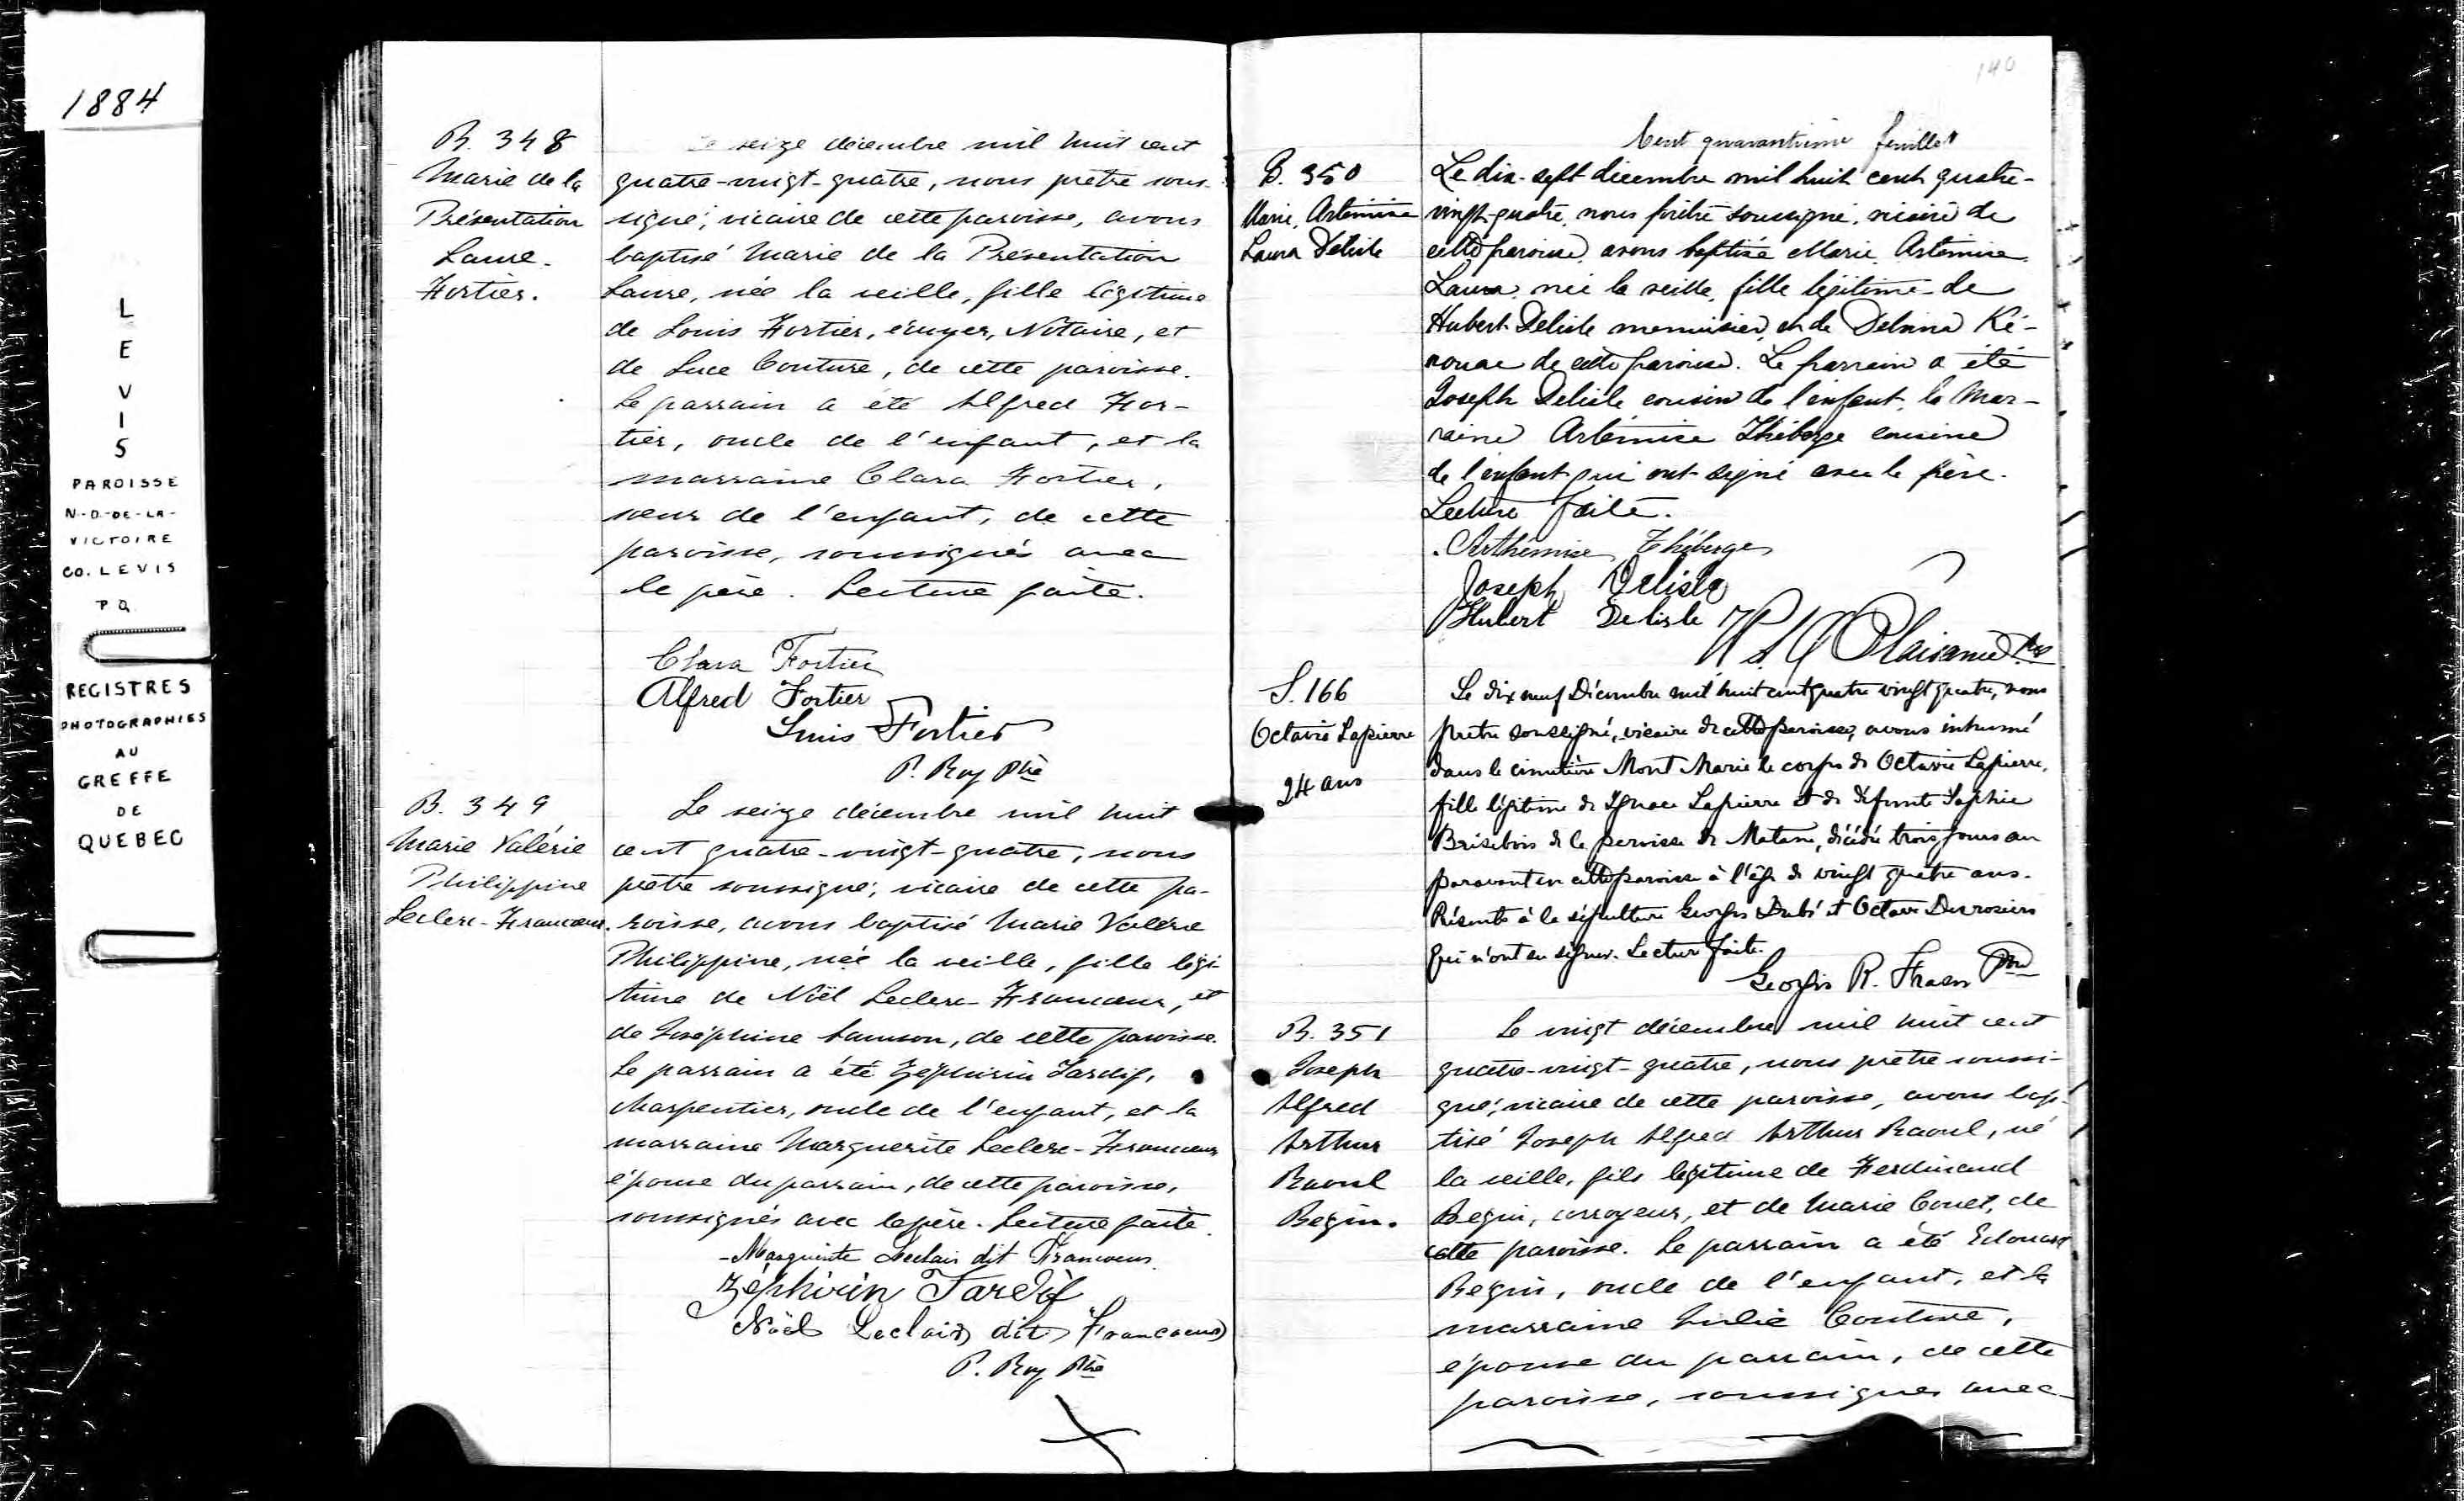 1884
L
E
V
I
S
PAROISSE
N.-D.-DE-LA-
VICTOIRE
CO. LEVIS
P Q
REGISTRES
PHOTOGRAPHIES
AU
GREFFE
DE
QUEBEC
B. 348
Marie de la
Présentation
Laure
Fortier.
Le seize décembre mil huit cent
quatre-vingt-quatre, nous prêtre sous-
signé, vicaire de cette paroisse, avons
baptisé Marie de la Présentation
Laure, née la veille, fille légitime
de Louis Fortier, écuyer, Notaire, et
de Luce Couture, de cette paroisse.
Le parrain a été Alfred For-
tier, oncle de l'enfant, et la
marraine Clara Fortier,
sœur de l'enfant, de cette
paroisse, soussignés avec
le père. Lecture faite.
Clara Fortier
Alfred Fortier
Louis Fortier
P. Roy Ptre
B. 349
Marie Valérie
Philippine
Leclerc-Francœur.
Le seize décembre mil huit
cent quatre-vingt-quatre, nous
prêtre soussigné, vicaire de cette pa-
roisse, avons baptisé Marie Valérie
Philippine, née la veille, fille légi-
time de Noël Leclerc-Francœur, et
de Joséphine Samson, de cette paroisse.
Le parrain a été Zéphirin Tardif,
charpentier, oncle de l'enfant, et la
marraine Marguerite Leclerc-Francœur
épouse du parrain, de cette paroisse,
soussignés avec le père. Lecture faite.
Marguerite Leclair dit Francœur
Zéphirin Tardif
Noël Leclair dit Francœur
P. Roy Ptre
140
Cent quarantième feuillet
B. 350
Marie, Artémise
Laura Delisle
Le dix-sept décembre mil huit cent quatre-
vingt-quatre, nous prêtre soussigné, vicaire de
cette paroisse, avons baptisé Marie, Artémise
Laura, née la veille, fille légitime de
Hubert Delisle menuisier, et de Delvina Ké-
rouac de cette paroisse. Le parrain a été
Joseph Delisle cousin de l'enfant, la mar-
raine Artémise Théberge cousine
de l'enfant qui ont signé avec le père.
Lecture faite.
Arthémise Théberge
Joseph Delisle
Hubert Delisle
Plaisance Ptre
S. 166
Octavie Lapierre
24 ans
Le dix neuf Décembre mil huit cent quatre vingt quatre, nous
prêtre soussigné, vicaire de cette paroisse, avons inhumé
dans le cimetière Mont Marie le corps de Octavie Lapierre,
fille légitime de Ignace Lapierre et de défunte Sophie
Brisebois de la paroisse de Matane, décédée trois jours au
paravant en cette paroisse à l'âge de vingt quatre ans.
Présents à la sépulture Georges Dubé et Octave Desrosiers
qui n'ont su signer. Lecture faite.
Georges R. Fraser Ptre
B. 351
Joseph
Alfred
Arthur
Raoul
Begin.
Le vingt décembre mil huit cent
quatre-vingt-quatre, nous prêtre soussi-
gné, vicaire de cette paroisse, avons bap-
tisé Joseph Alfred Arthur Raoul, né
la veille, fils légitime de Ferdinand
Begin, corroyeur, et de Marie Couet, de
cette paroisse. Le parrain a été Edouard
Begin, oncle de l'enfant, et la
marraine Julie Couture,
épouse du parrain, de cette
paroisse, soussignés avec